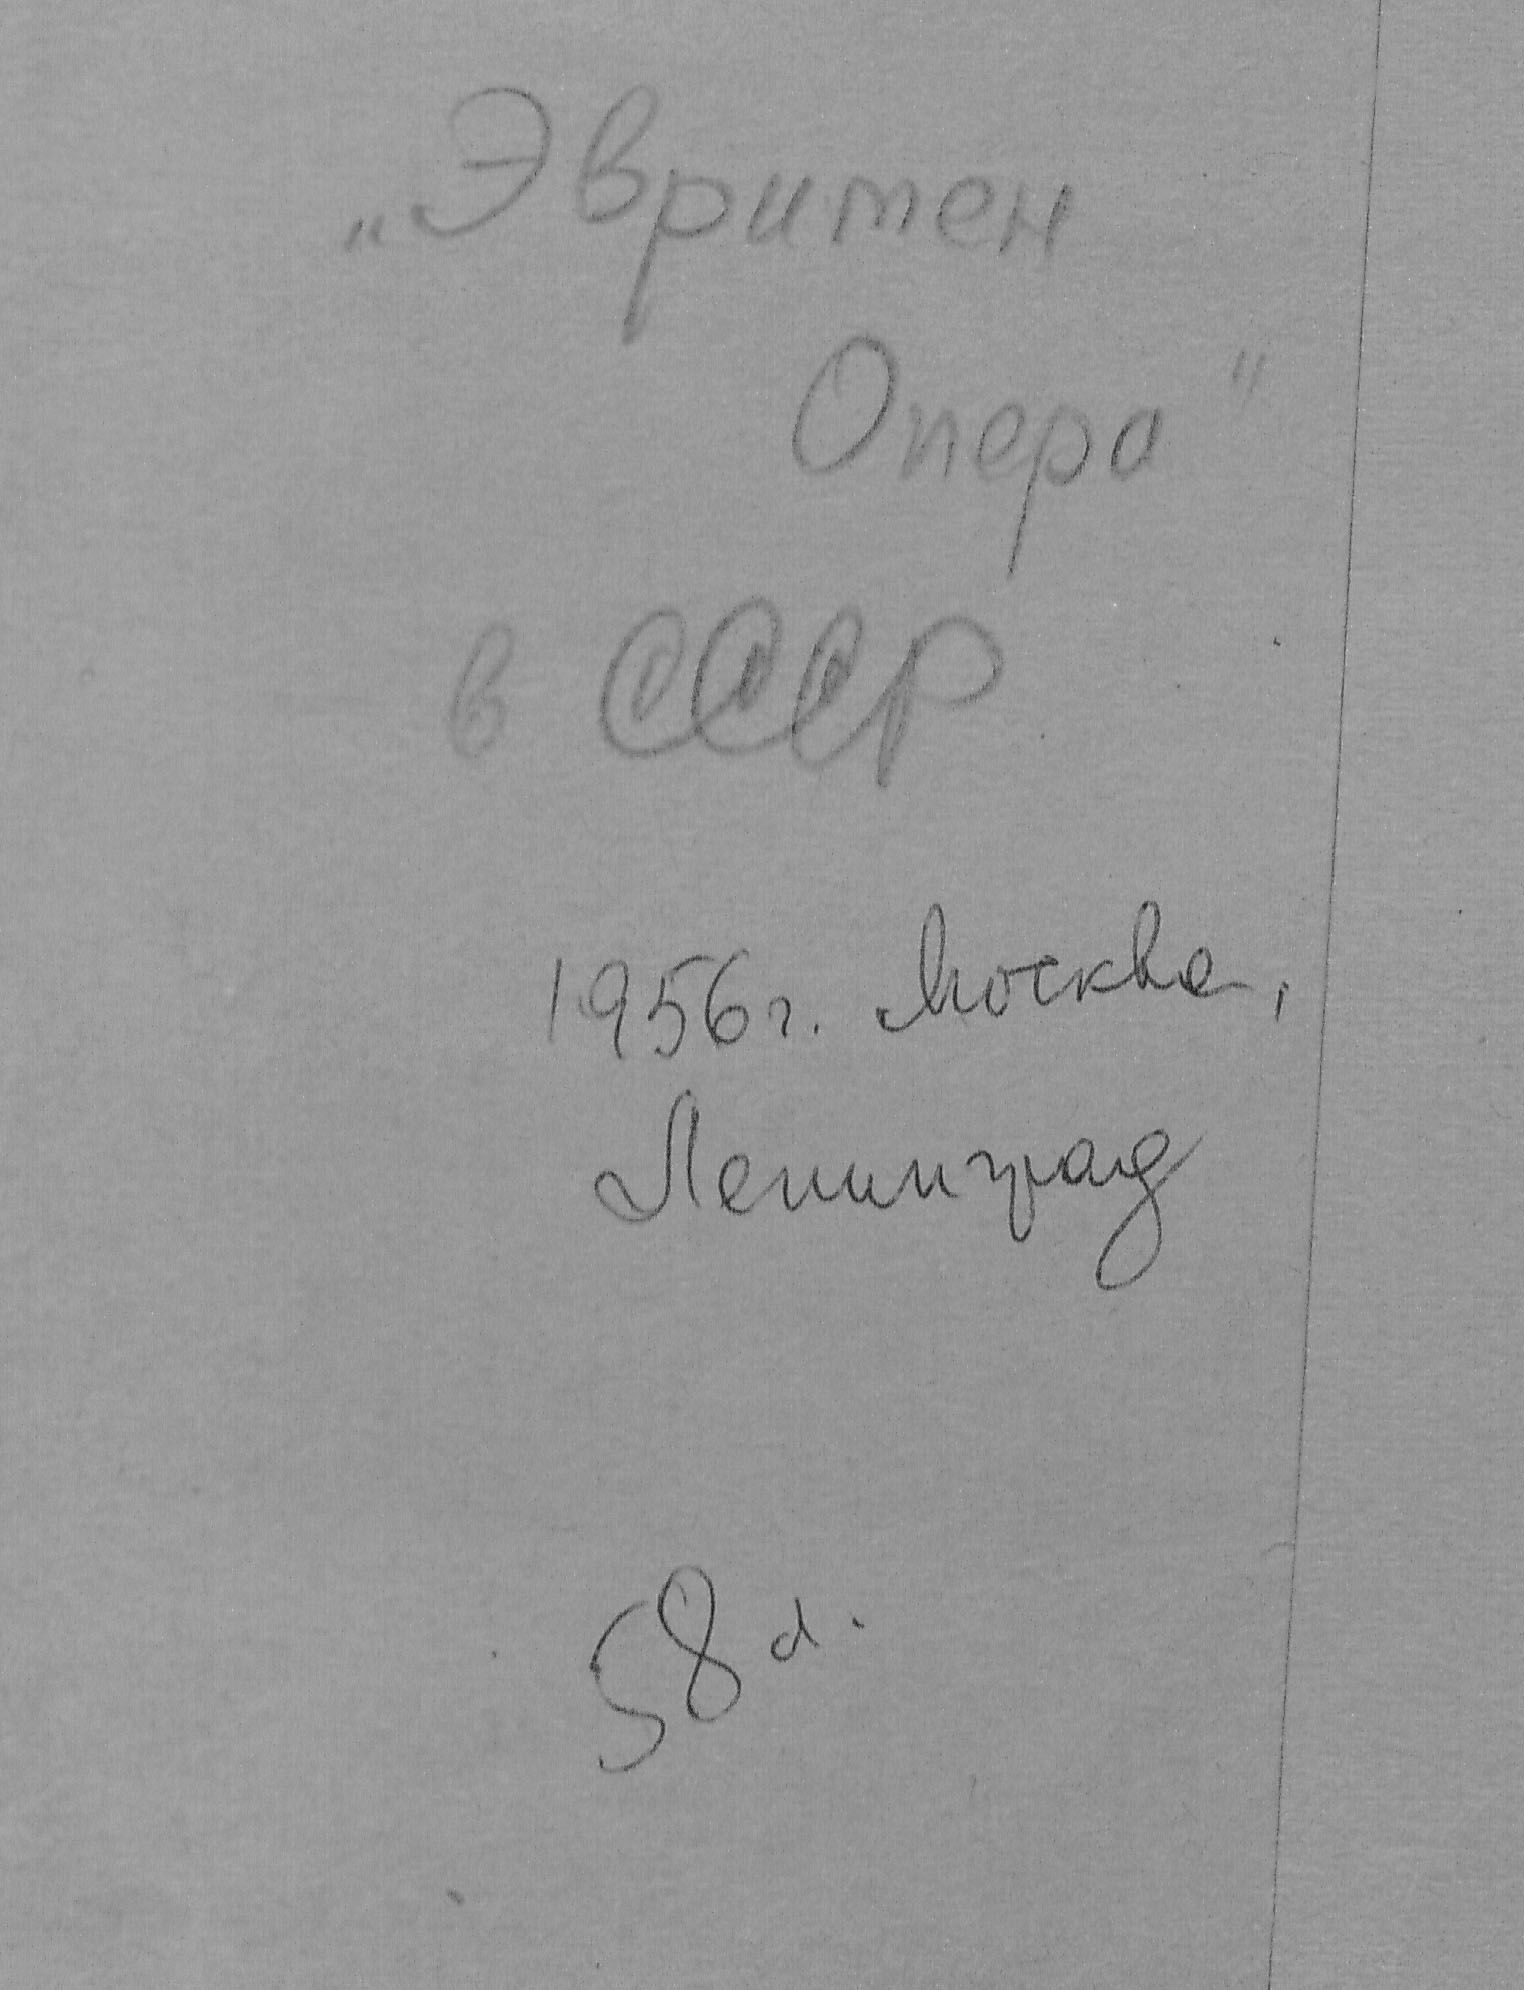 „Эвритен
Опера"
в СССР
1956 г. Москва,
Ленинград
58 л.